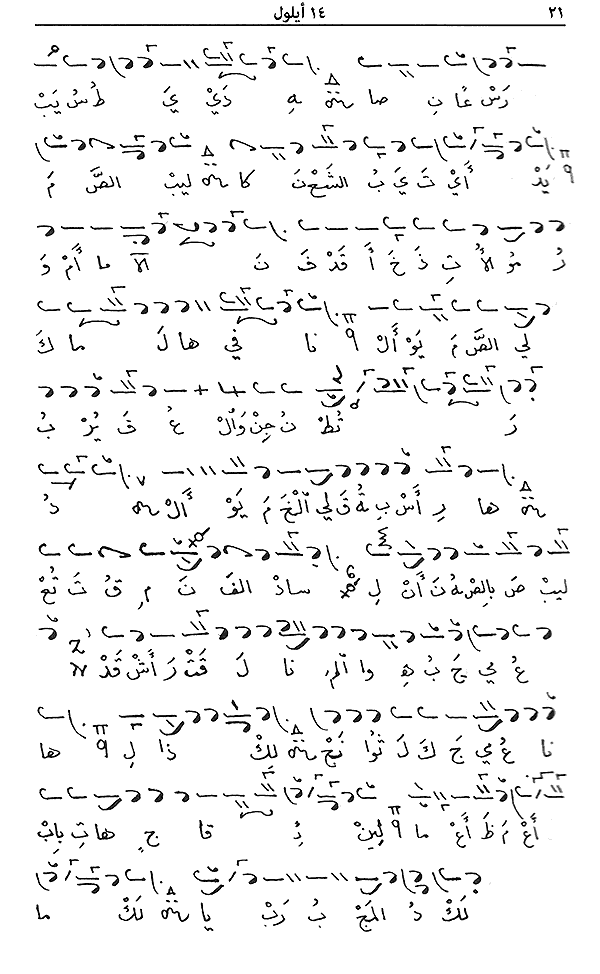 ٢١ ١٤ أيلول
رَسْ عَا نِ صا هِ دَيْ يَ طُسْ يَبْ
يَدْ أَيْ تَ يَ بُ الشَعْنَ كا لِيبْ الصَّ مَ
رُ مُو لأُ تِ ذَ خَ أَ قَدْ فَ نَ الآ ما أَمْ وَ
لي الصَّ مَ يَوْ أَلْ نا في ها لَ ما كَ
رَ ثُطْ نُ جِنْ وَالْ عُ قَ يُرْ بُ
ها رِ أَسْ بِ ةُ قَ لي الْخَ مَ يَوْ أَلْ دُ
لِيبْ صَ بِالصْ هُ نَ أَنْ لِ سادْ الفَ نَ مِ قُ تَ تُعْ
عُ مي جَ بُ هِ والم نا لَ قَتْ رَ أَشْ قَدْ
نا عُ مي جَ كَ لَ ثُوا نَحْ لِكْ ذا لِ ها
أَعْ مَ ظَ أَعْ ما لِينْ ئِ قا جِ هاتِ بِابْ
لَكْ دُ المَجْ بُ رَبْ يا لَكْ ما